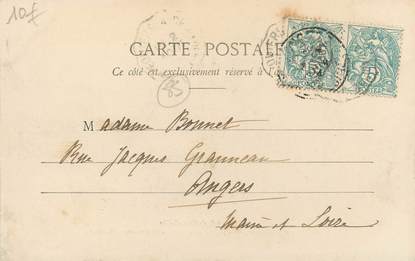 10f
CARTE POSTALE
Ce côté est exclusivement réservé à l'
Madame Bonnet
Rue Jacques Granneau
Angers
Maine et Loire